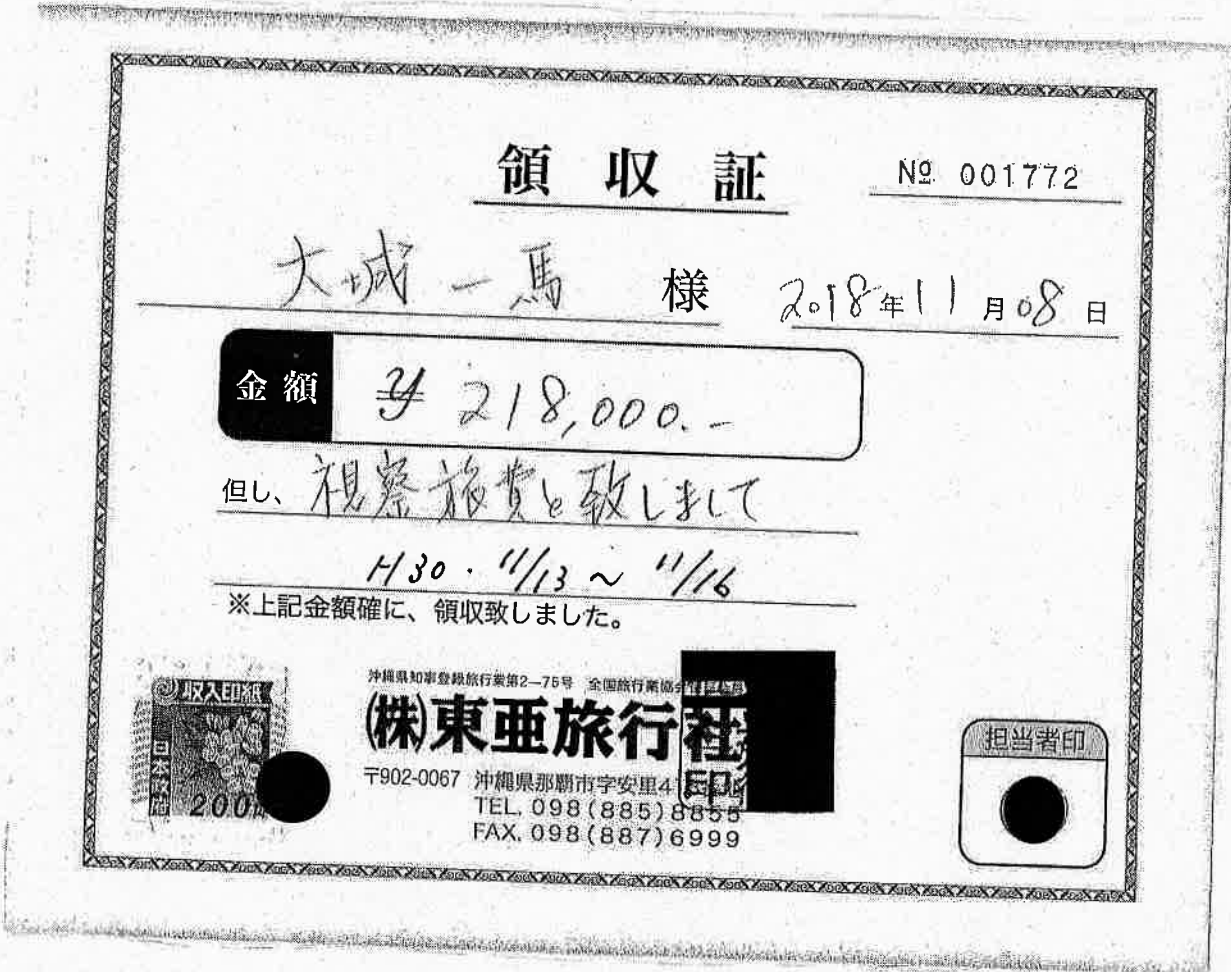 領収証
№ 001772
大城一馬 様
2018年11月08日
金額 ¥ 218,000.-
但し、視察旅費と致しまして
H30・11/13～11/16
※上記金額確に、領収致しました。
収入印紙
日本政府
200円
沖縄県知事登録旅行業第2—75号 全国旅行業協会
(株)東亜旅行社
〒902-0067 沖縄県那覇市字安里4
TEL. 098(885)8855
FAX. 098(887)6999
担当者印